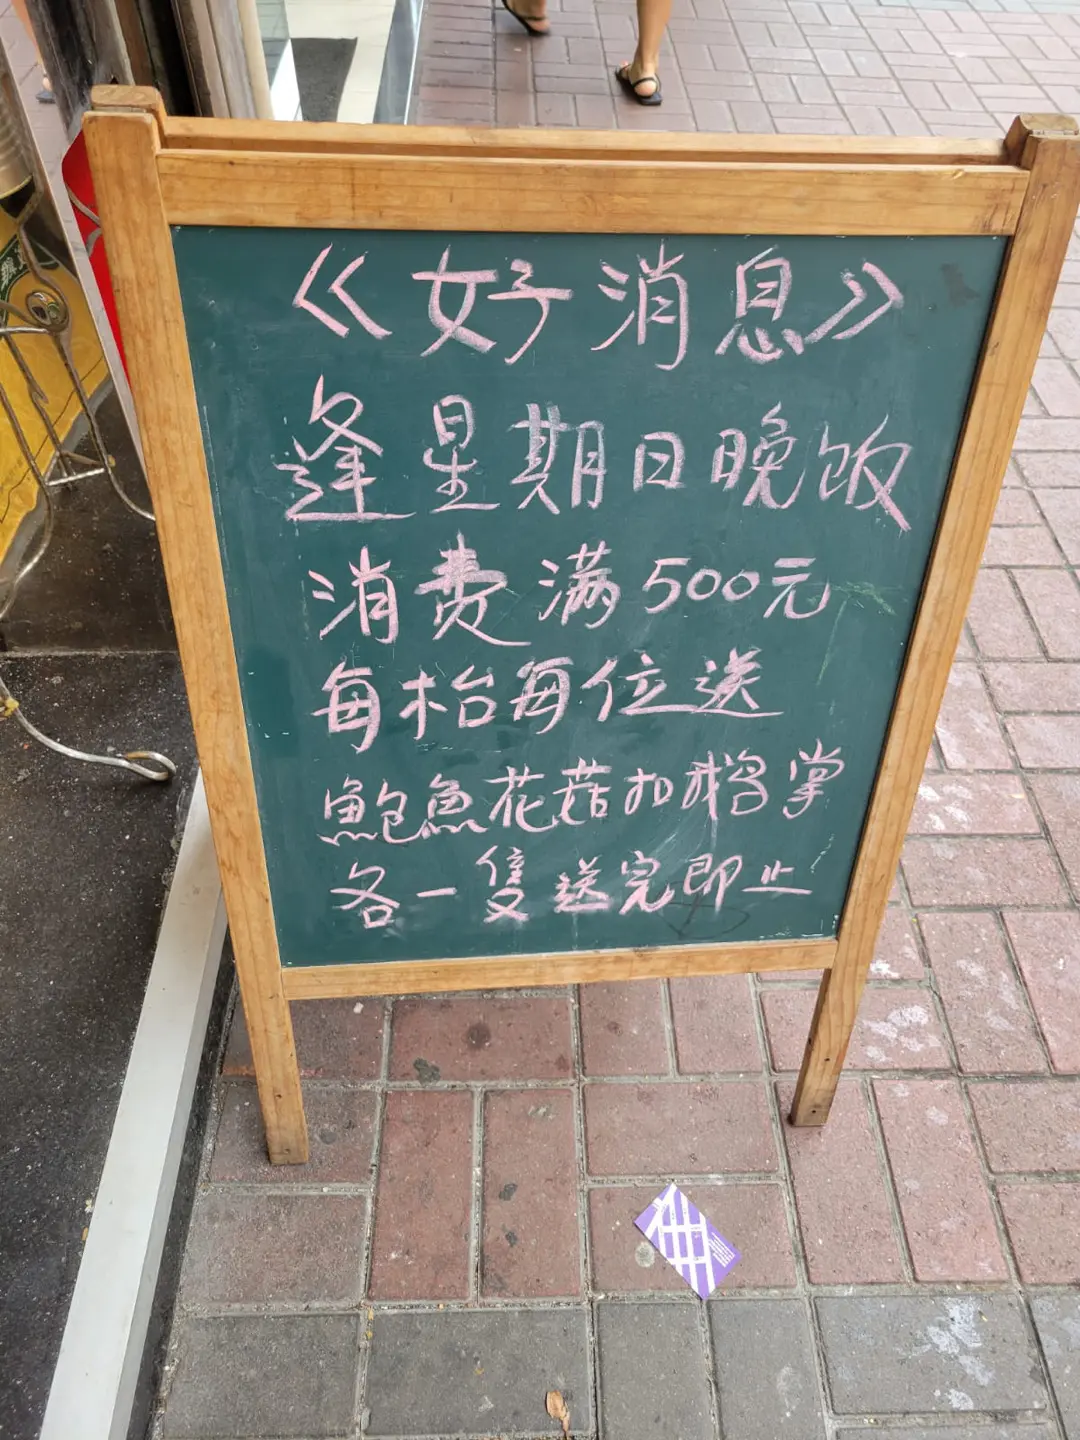 《好消息》
逢星期日晚飯
消费满500元
每枱每位送
鮑魚花菇扣鵝掌
各一隻送完即止